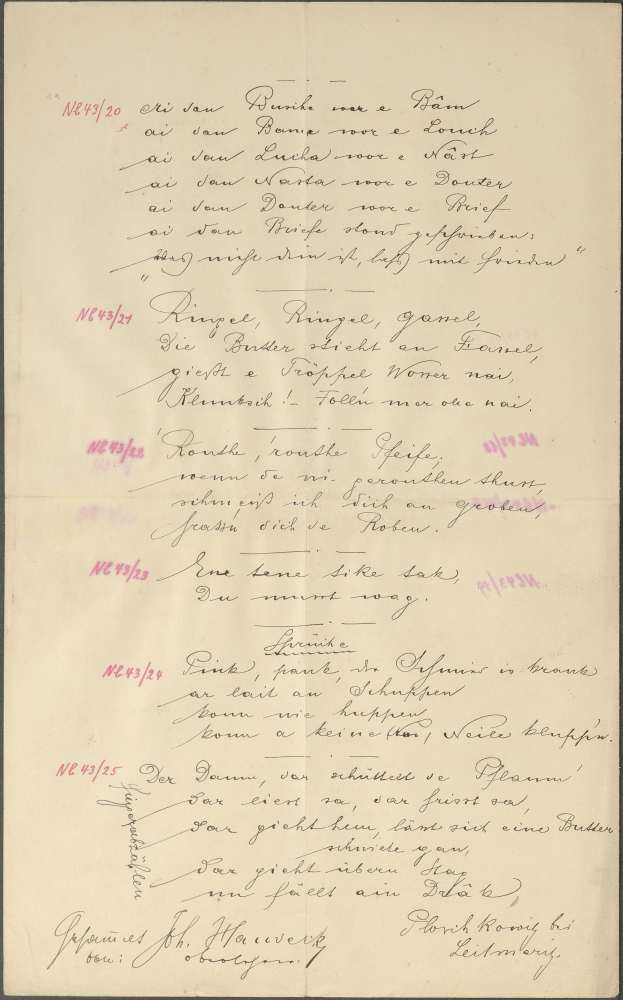 Nl 43/20 ai dan Busche woar e Bâm
ai dan Bame woor e Louch
ai dan Lucha woor e Nâst
ai dan Nasta woor e Douter
ai dan Douter woor e Brief
ai dan Briefe stond geschrieben:
„Was nicht dein ist, laß mit Frieden“
Nl 43/21 Ringel, Ringel, Gassel,
Die Butter sticht an Fassel,
gießt e Tröppel Wosser nai,
Klumbsch! - Folln mer olle nai.
Nl 43/22 Routhe, routhe Pfeife,
wenn de ni gerouthen thust,
schmeiß ich dich an groben,
frassn dich de Roben.
Nl 43/23 Ene tene tike tak,
Du musst wag.
Sprüche
Nl 43/24 Pink, pank, dr Schmied is krank
ar lait an Schuppen
konn nie huppen
konn a keine Neile kluppn.
Nl 43/25 Der Daum, dar schüttelt de Pflaum
dar liest sa, dar frisst sa,
dar gieht hem, lässt sich eine Butter
schniete gan,
dar gieht übern
un fällt ain Drâk
Fingerabzählen
Gesammelt Joh. Hauverk
von: Oberlehrer.
Ploschkowig bei
Leitmeritz.